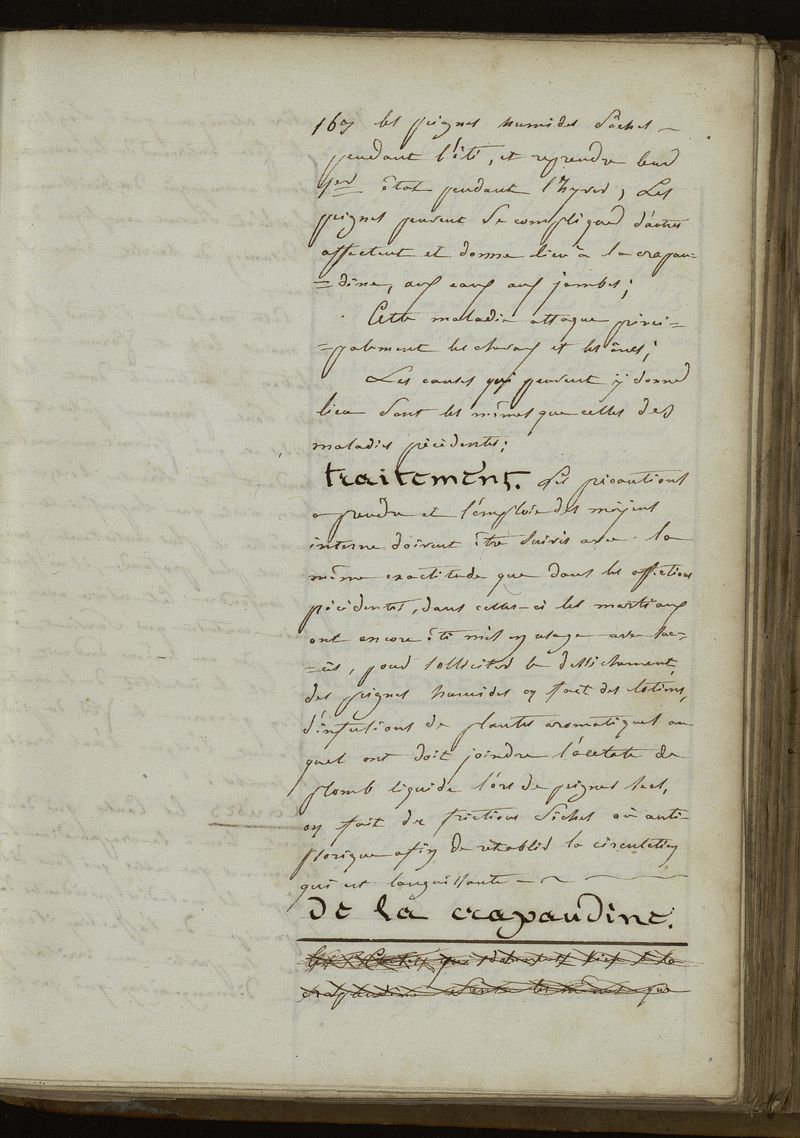 167 les peignes humides sêches
pendant l'été, et reprendre leur
1er êtat pendant l'hyver, Les
peignes peuvent se compliquer d'autres
affections et donne lieu à la crapau=
=dine, aux eaux aux jambes;
Cette maladie attaque princi=
=palement les chevaux et les ânes;
Les causes qui peuvent y donner
lieu sont les mêmes que celles des
maladies précédentes;
traitement. Les précautions
a prendre et l'emploie des moyens
interne doivent être suivis avec la
même exactitude que dans les affections
précédentes, dans celles-ci les martiaux
ont encore été mis en usage avec suc=
=cès, pour solliciter le desséchement
des peignes humides on fait des lotions,
d'infusions de plantes aromatiques au
quel ont doit joindre l'acétate de
plomb liquide lors de peignes secs,
on fait de frictions sêches ou anti-
psorique afin de rétablir la circulation
qui est languissante
de la crapaudine.
crapaudine les mêmes que